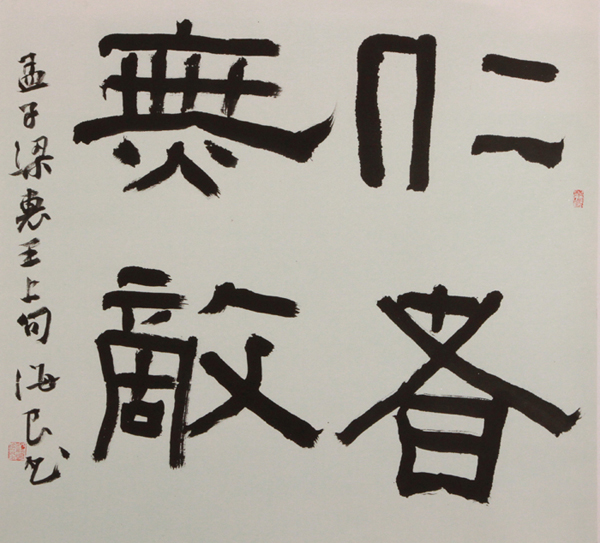 仁者
無敵
孟子梁惠王上句 海良书